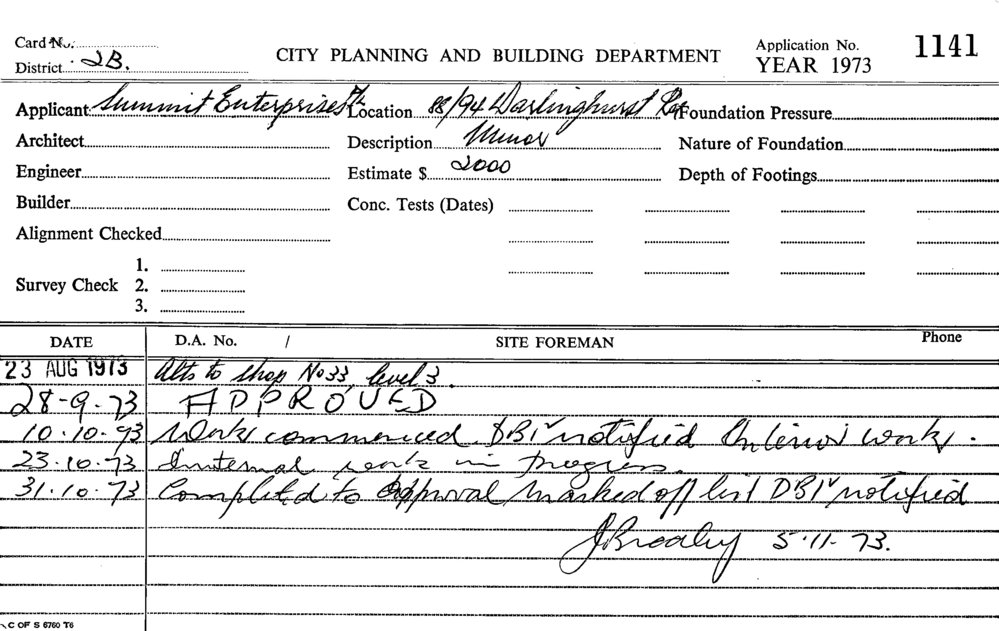 Card No.
District 2B.
CITY PLANNING AND BUILDING DEPARTMENT
Application No. 1141
YEAR 1973
Applicant Summit Enterprises P/L Location 88/94 Darlinghurst Rd Foundation Pressure
Architect Description Minor Nature of Foundation
Engineer Estimate $ 2000 Depth of Footings
Builder Conc. Tests (Dates)
Alignment Checked
1.
Survey Check 2.
3.
DATE D.A. No. / SITE FOREMAN Phone
23 AUG 1973 Alts to shop No 33, level 3.
28-9-73 APPROVED
10.10.73 Work commenced DBI notified Interior work.
23.10.73 Internal work in progress.
31.10.73 Completed to approval marked off list DBI notified
5.11.73.
C OF S 6760 T6